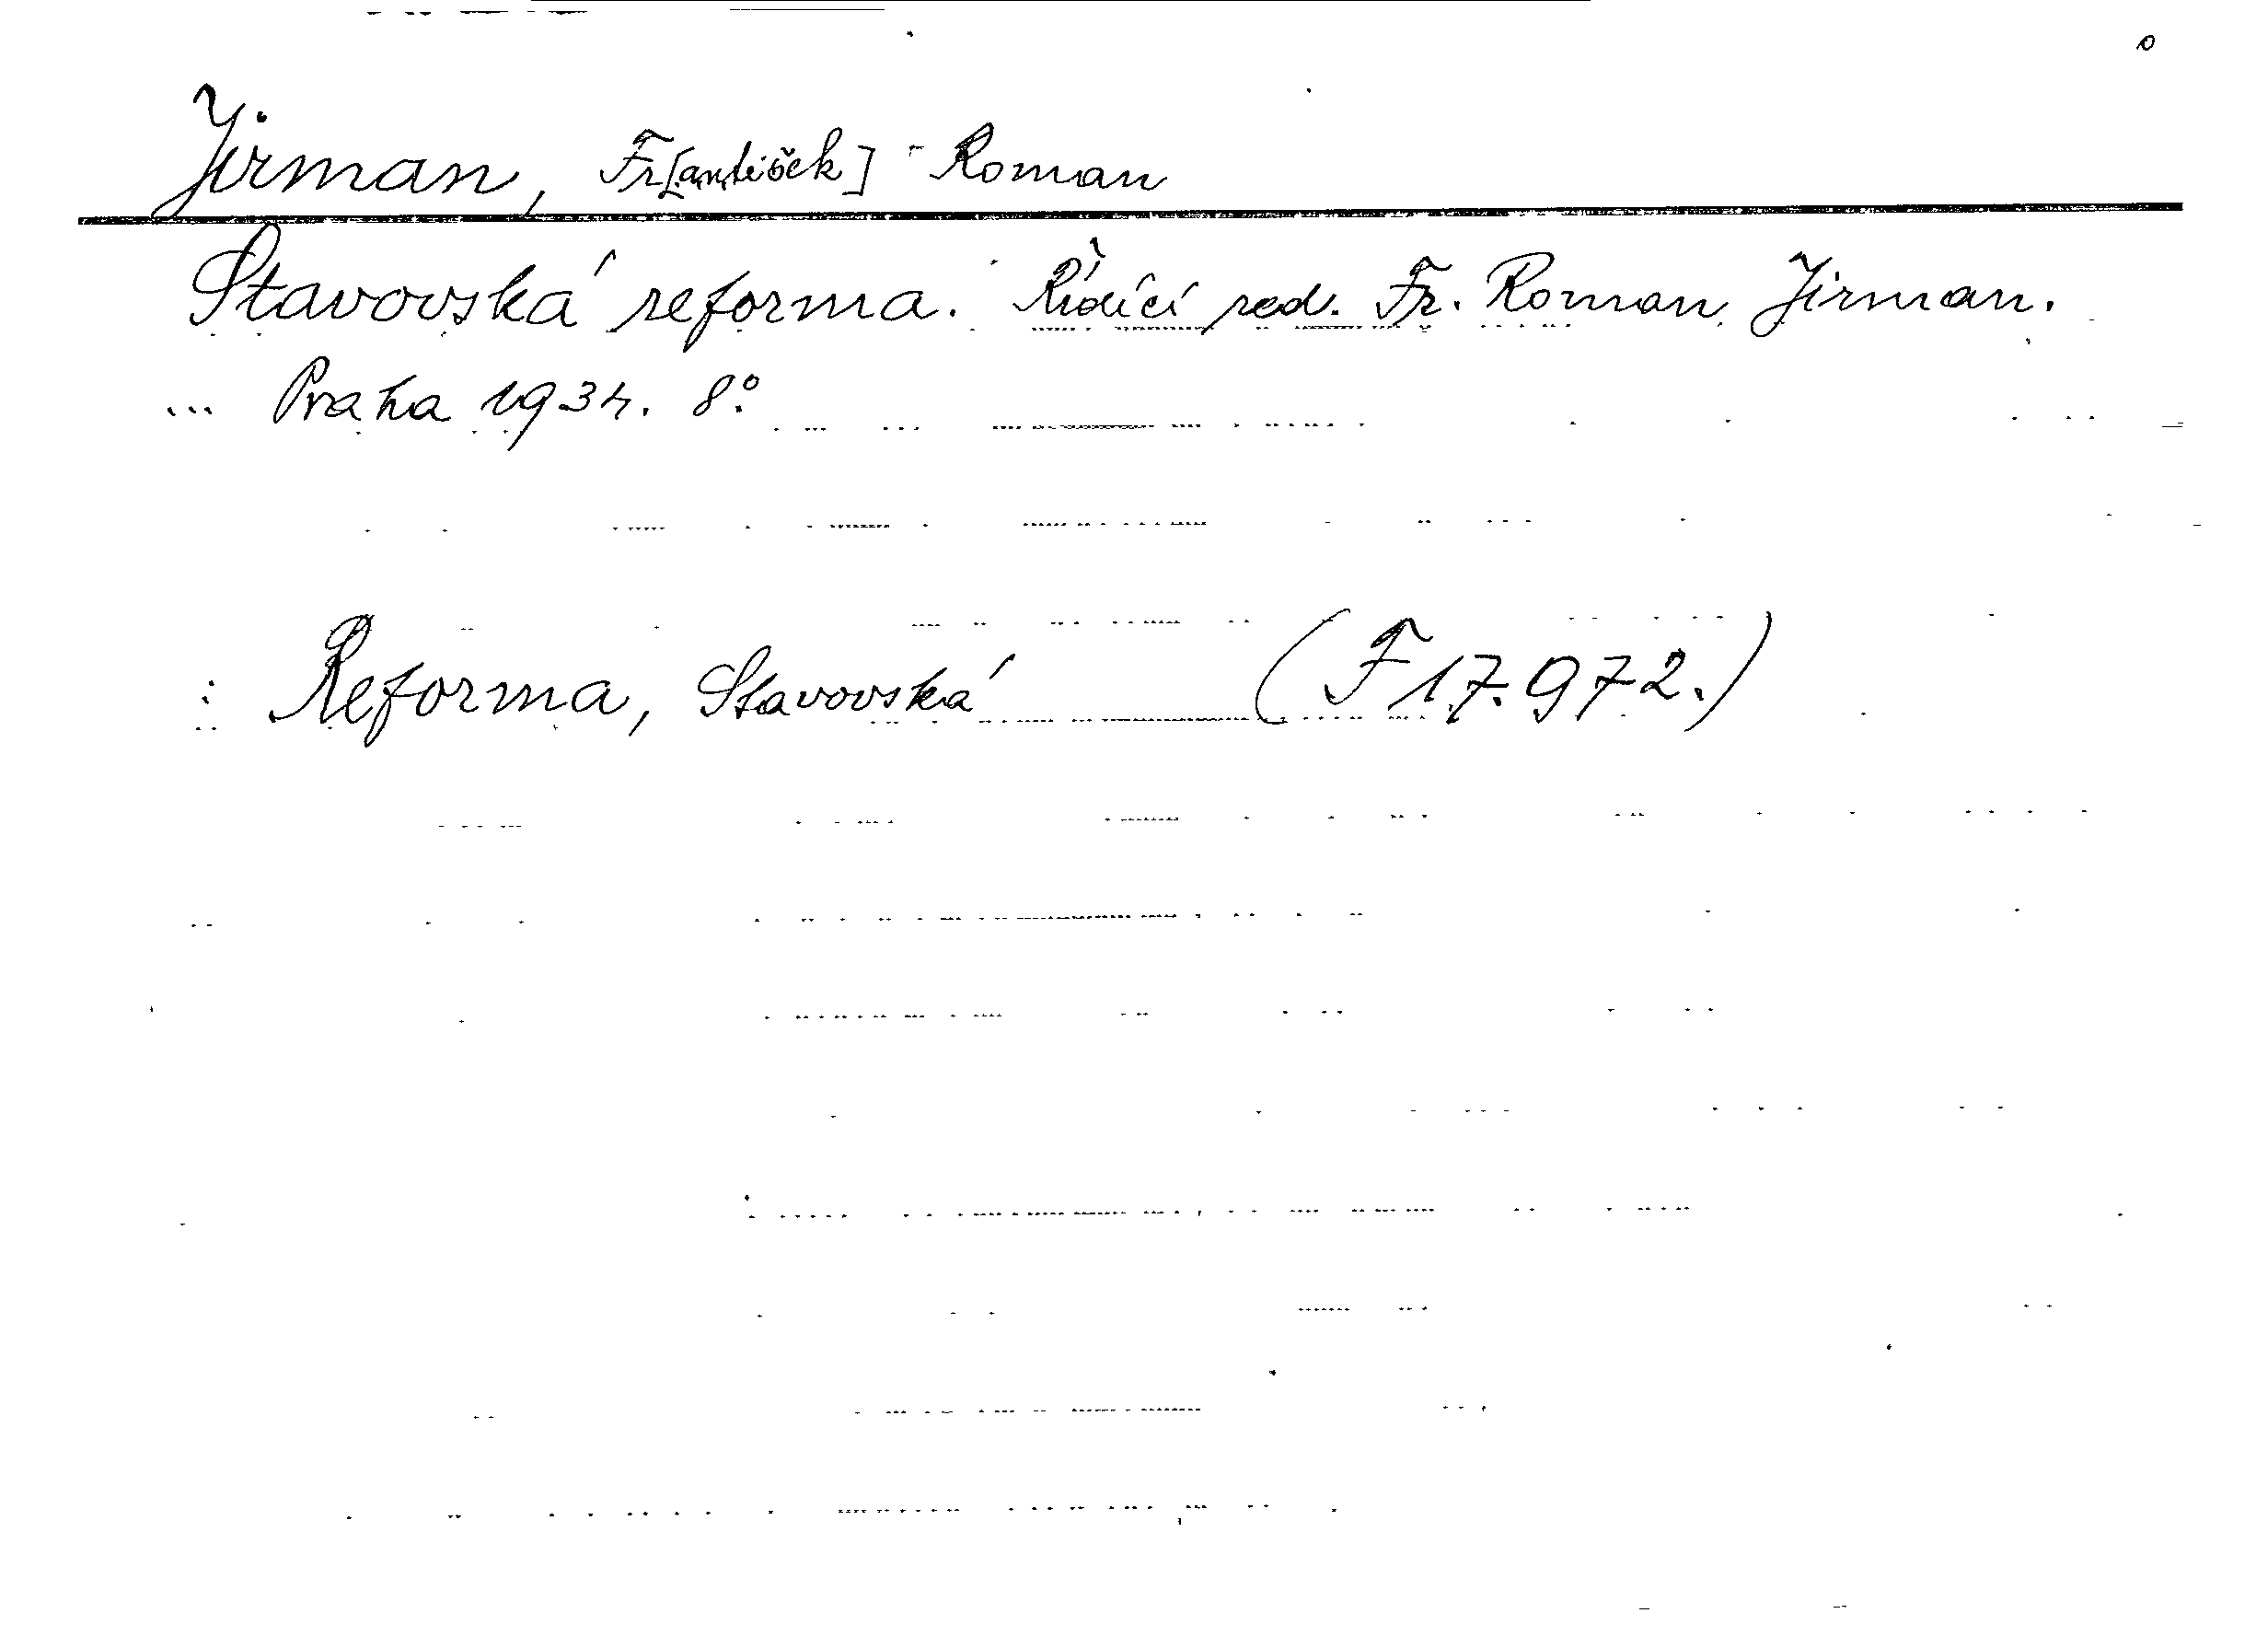 Jirman, Fr[antišek] Roman
Stavovská reforma. Řídící red. Fr. Roman Jirman.
... Praha 1934. 8°.
: Reforma, Stavovská (F 17.972.)